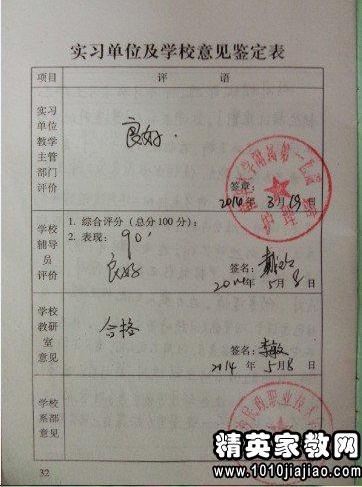 实习单位及学校意见鉴定表
项目 评 语
实习
单位
教学
主管
部门
评价
良好.
签章:
2014年 3月19日
学校
辅导
员
评价
1. 综合评分(总分100分):
2. 表现: 90'
良好
签名:
2014年 5月8日
学校
教研
室
意见
合格
签名: 李敏
2014年 5月8日
学校
系部
意见
32
精英家教网
www.1010jiajiao.com